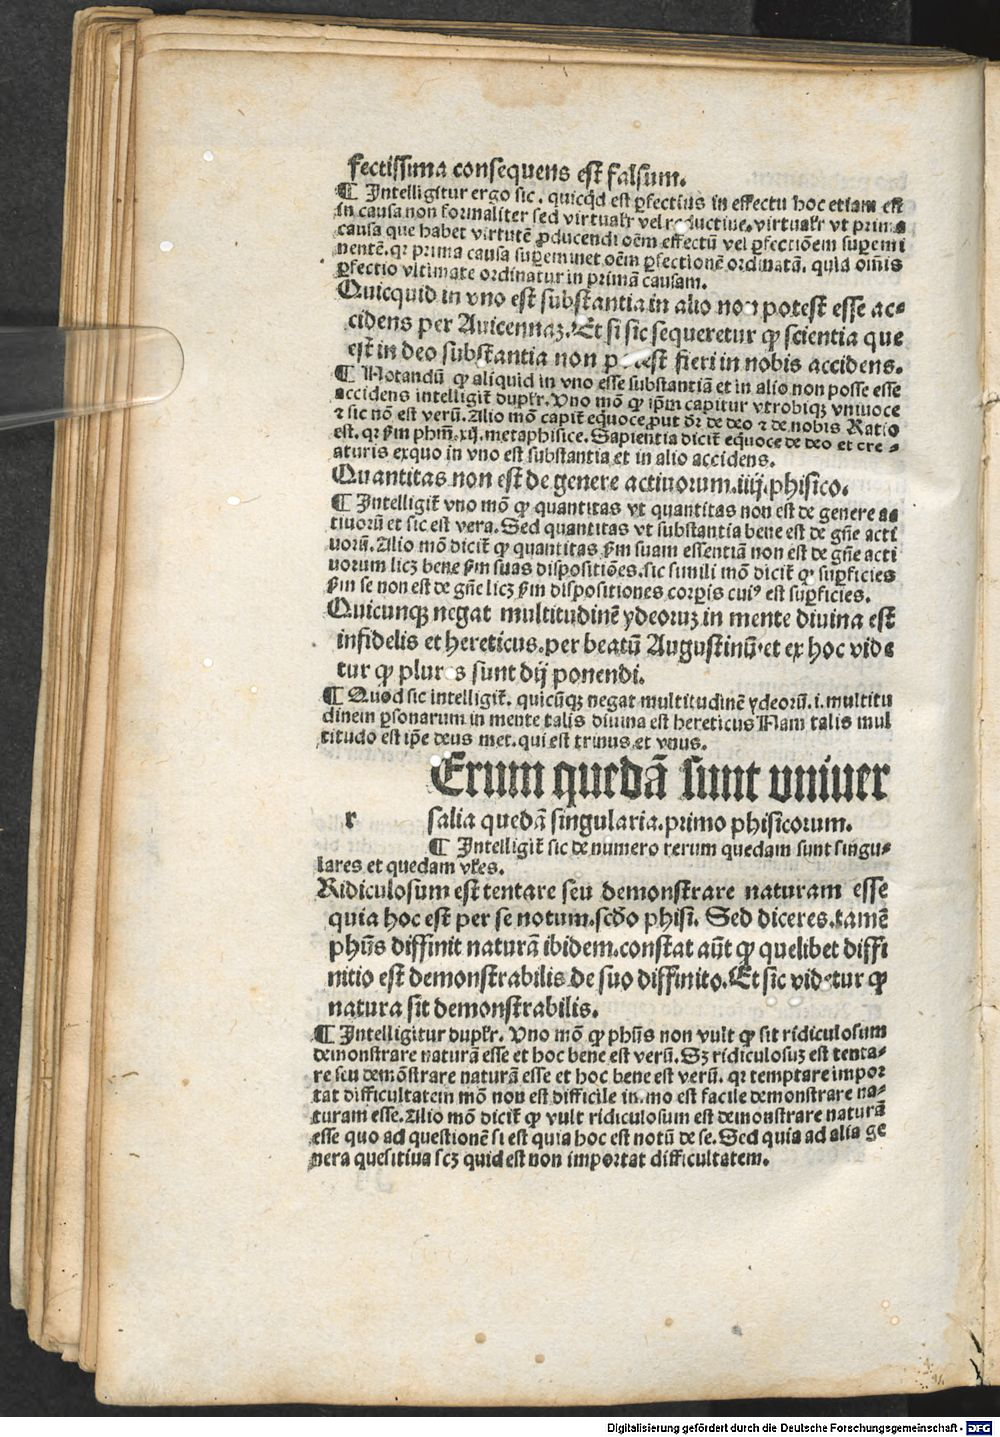 fectissima consequens est falsum.
¶ Intelligitur ergo sic. quicq̈d est ꝑfectius in effectu hoc etiam est
in causa non formaliter sed virtualr̄ vel reductiue. virtualr̄ vt prima
causa que habet virtutē ꝓducendi oēm effectū vel ꝑfectiōem supemi
nentē. qr prima causa supeminet oēm ꝑfectionē ordinatā. quia omīs
ꝑfectio vltimate ordinatur in primā causam.
Quicquid in vno est substantia in alio non potest esse ac-
cidens per Auicennaꝫ. Et si sic sequeretur ꝙ scientia que
est in deo substantia non potest fieri in nobis accidens.
¶ Notandū ꝙ aliquid in vno esse substantiā et in alio non posse esse
accidens intelligit̄ duplr̄. Vno mō ꝙ ip̄m capitur vtrobiqꝫ vniuoce
⁊ sic nō est verū. Alio mō capit̄ equoce prout dr̄ de deo ⁊ de nobis Ratio
est. qr ẜm phm̄. xij. metaphisice. Sapientia dicit̄ equoce de deo et cre-
aturis exquo in vno est substantia et in alio accidens.
Quantitas non est de genere actiuorum. iiij. phisico.
¶ Intelligit̄ vno mō ꝙ quantitas vt quantitas non est de genere ac
tiuorū et sic est vera. Sed quantitas vt substantia bene est de gn̄e acti
uorū. Alio mō dicit̄ ꝙ quantitas ẜm suam essentiā non est de gn̄e acti
uorum licꝫ bene ẜm suas dispositiōes. sic simili mō dicit̄ ꝙ supꝑficies
ẜm se non est de gn̄e licꝫ ẜm dispositiones corpis cuiꝰ est supꝑficies.
Quicunqꝫ negat multitudinē ydeoruꝫ in mente diuina est
infidelis et hereticus. per beatū Augustinū. et ex hoc vide
tur ꝙ plures sunt dij ponendi.
¶ Quod sic intelligit̄. quicūqꝫ negat multitudinē ydeorū. i. multitu
dinem ꝑsonarum in mente talis diuina est hereticus Nam talis mul
titudo est ip̄e deus met. qui est trinus et vnus.
Erum quedā sunt vniuer
r salia quedā singularia. primo phisicorum.
¶ Intelligit̄ sic de numero rerum quedam sunt singu-
lares et quedam vl̄es.
Ridiculosum est tentare seu demonstrare naturam esse
quia hoc est per se notum. scd̄o phisi. Sed diceres. tamē
phūs diffinit naturā ibidem. constat aūt ꝙ quelibet diffi
nitio est demonstrabilis de suo diffinito. Et sic videtur ꝙ
natura sit demonstrabilis.
¶ Intelligitur duplr̄. Vno mō ꝙ phūs non vult ꝙ sit ridiculosum
demonstrare naturā esse et hoc bene est verū. Sꝫ ridiculosuꝫ est tenta-
re seu demōstrare naturā esse et hoc bene est verū. qr temptare impor
tat difficultatem mō non est difficile immo est facile demonstrare na-
turam esse. Alio mō dicit̄ ꝙ vult ridiculosum est demonstrare naturā
esse quo ad questionē si est quia hoc est notū de se. Sed quia ad alia ge
nera quesitiua scꝫ quid est non importat difficultatem.
Digitalisierung gefördert durch die Deutsche Forschungsgemeinschaft - DFG